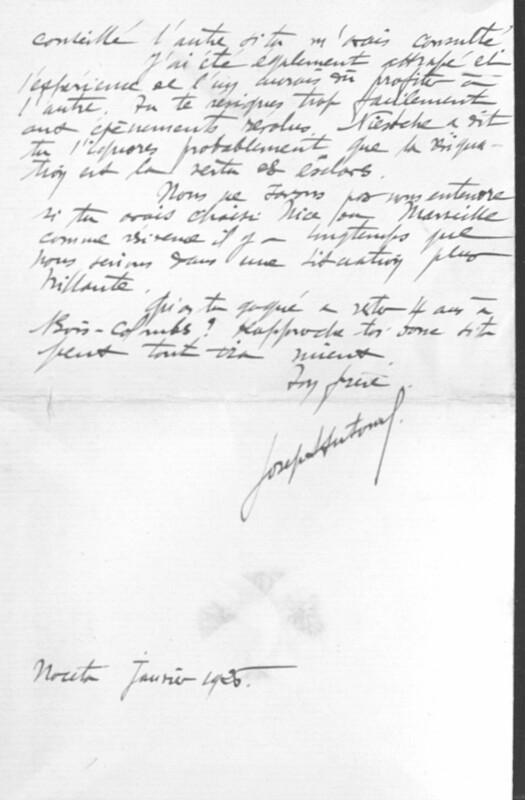 conseillé l'autre si tu m'avais consulté
J'ai été également attrapé et
l'expérience de l'un aurait dû profiter à
l'autre. Tu te résignes trop facilement
aux évènements révolus. Nietsche a dit
tu l'ignores probablement que la résigna-
tion est la vertu des esclaves.
Nous ne savons pas nous entendre
si tu avais choisi Nice ou Marseille
comme résidence il y a longtemps que
nous serions dans une situation plus
brillante.
Qu'as tu gagné à rester 4 ans à
Bois-Colombes? Rapproche toi donc si tu
peux tout ira mieux.
Ton frère
Joseph Antoni
Noceta Janvier 1925.